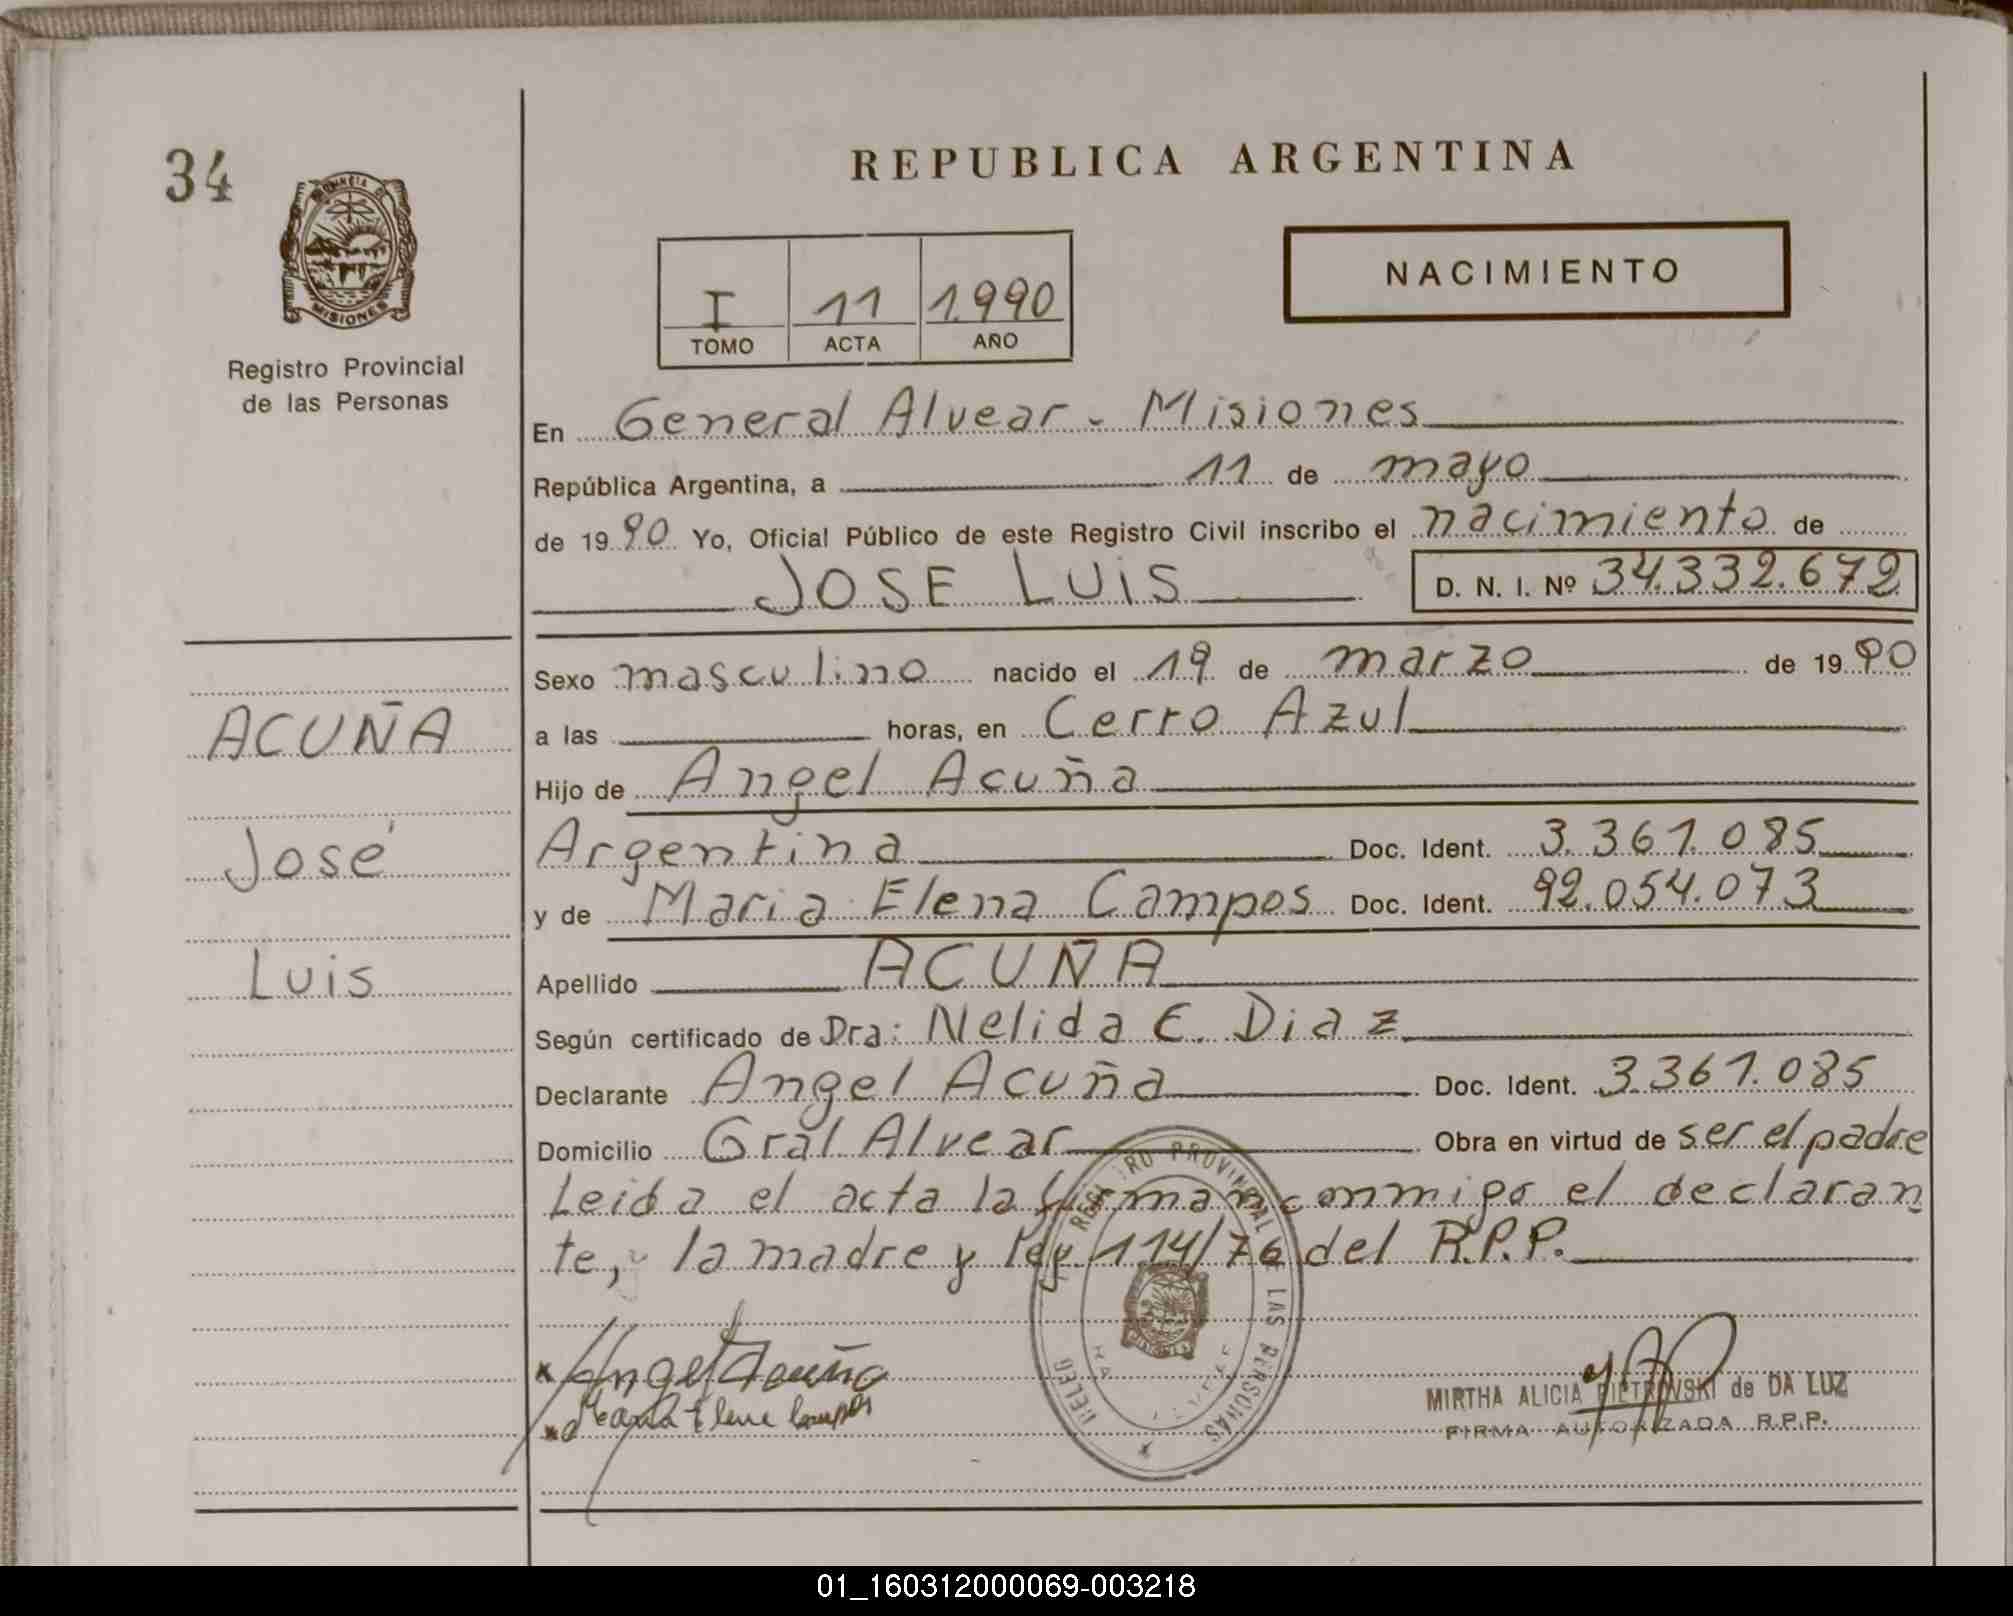 34
PROVINCIA DE
MISIONES
Registro Provincial
de las Personas
REPUBLICA ARGENTINA
I 11 1.990
TOMO ACTA AÑO
NACIMIENTO
En General Alvear - Misiones
República Argentina, a 11 de mayo
de 1990 Yo, Oficial Público de este Registro Civil inscribo el nacimiento de
JOSE LUIS D. N. I. Nº 34.332.672
Sexo masculino nacido el 19 de marzo de 1990
ACUÑA
a las horas, en Cerro Azul
Hijo de Angel Acuña
José
Argentina Doc. Ident. 3.361.085
y de Maria Elena Campos Doc. Ident. 92.054.073
Luis
Apellido ACUÑA
Según certificado de Dra: Nelida E. Diaz
Declarante Angel Acuña Doc. Ident. 3.361.085
Domicilio Gral Alvear Obra en virtud de ser el padre
Leida el acta la firman conmigo el declaran
te, y la madre y ley 114/76 del R.P.P.
REGISTRO PROVINCIAL DE LAS PERSONAS
DELEG
Angel Acuña
Maria Elena Campos
MIRTHA ALICIA PIETROVSKI de DA LUZ
FIRMA AUTORIZADA R.P.P.
01_160312000069-003218